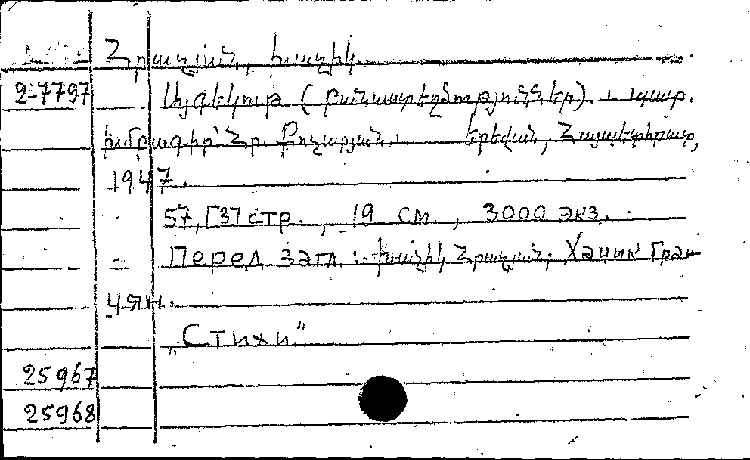 Հրաչյան, Խաչիկ
2-7797 Այգեկութ (բանաստեղծություններ). պատ.
խմբագիր՝ Հր. Քոչարյան. Երեվան, Հայպետհրատ,
1947.
57, [3] стр., 19 см, 3000 экз.
Перел загл: Խաչիկ Հրաչյան, Хачик Гра-
чян.
„Стихи"
25967
25968